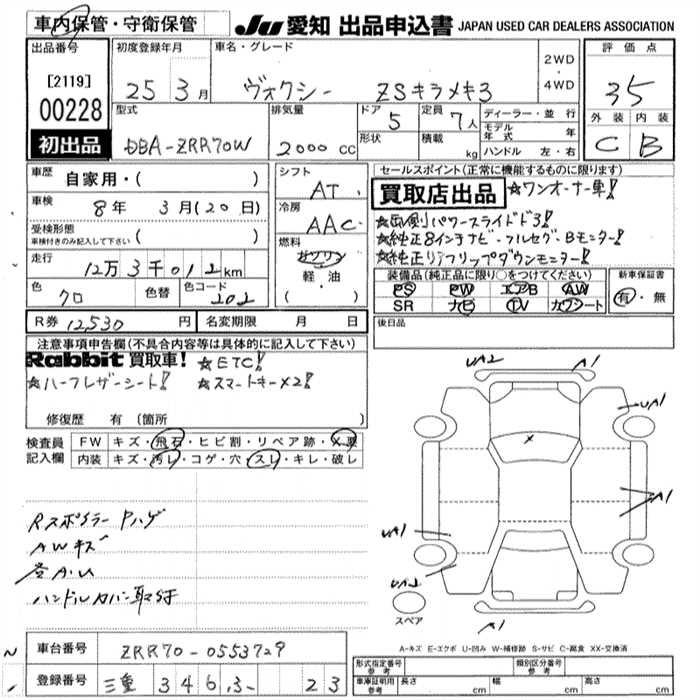 車内保管・守衛保管
JU 愛知 出品申込書 JAPAN USED CAR DEALERS ASSOCIATION
出品番号
[2119]
00228
初出品
初度登録年月
25 3月
車名・グレード
ヴォクシー ZSキラメキ3
2WD
・
4WD
評価点
3.5
外装 内装
C B
型式
DBA-ZRR70W
排気量
2000 cc
ドア
5
形状
定員
7人
積載
kg
ディーラー・並行
モデル年式 年
ハンドル 左・右
車歴
自家用・( )
車検
8年 3月(20日)
受検形態
車検付きのみ記入して下さい
( )
走行
12万3千012km
色
クロ
色替
色コード
202
R券 12,530 円
名変期限 月 日
シフト
AT
冷房
AAC
燃料
ガソリン
軽・油
( )
セールスポイント(正常に機能するものに限ります)
買取店出品 ☆ワンオーナー車!
☆両側パワースライドドア!
☆純正8インチナビ・フルセグ・Bモニター!
☆純正リアフリップダウンモニター!
装備品(純正品に限り○をつけてください)
PS PW エアB AW
SR ナビ TV カワシート
新車保証書
有・無
後日品
注意事項申告欄(不具合内容等は具体的に記入して下さい)
Rabbit 買取車! ☆ETC!
☆ハーフレザーシート! ☆スマートキー×2!
修復歴 有 (箇所 )
検査員記入欄
FW キズ・飛石・ヒビ割・リペア跡・X要
内装 キズ・汚レ・コゲ・穴・スレ・キレ・破レ
Rスポイラー Pハゲ
AWキズ
ハンドルカバー取付
UA2
A1
UA1
A1
UA1
UA2
A1
スペア
A-キズ E-エクボ U-凹み W-補修跡 S-サビ C-腐食 XX-交換済
車台番号 ZRR70-0553729
登録番号 三重 346 23
形式指定番号 参考
類別区分番号 参考
車庫証明用 参考 長さ cm 幅 cm 高さ cm